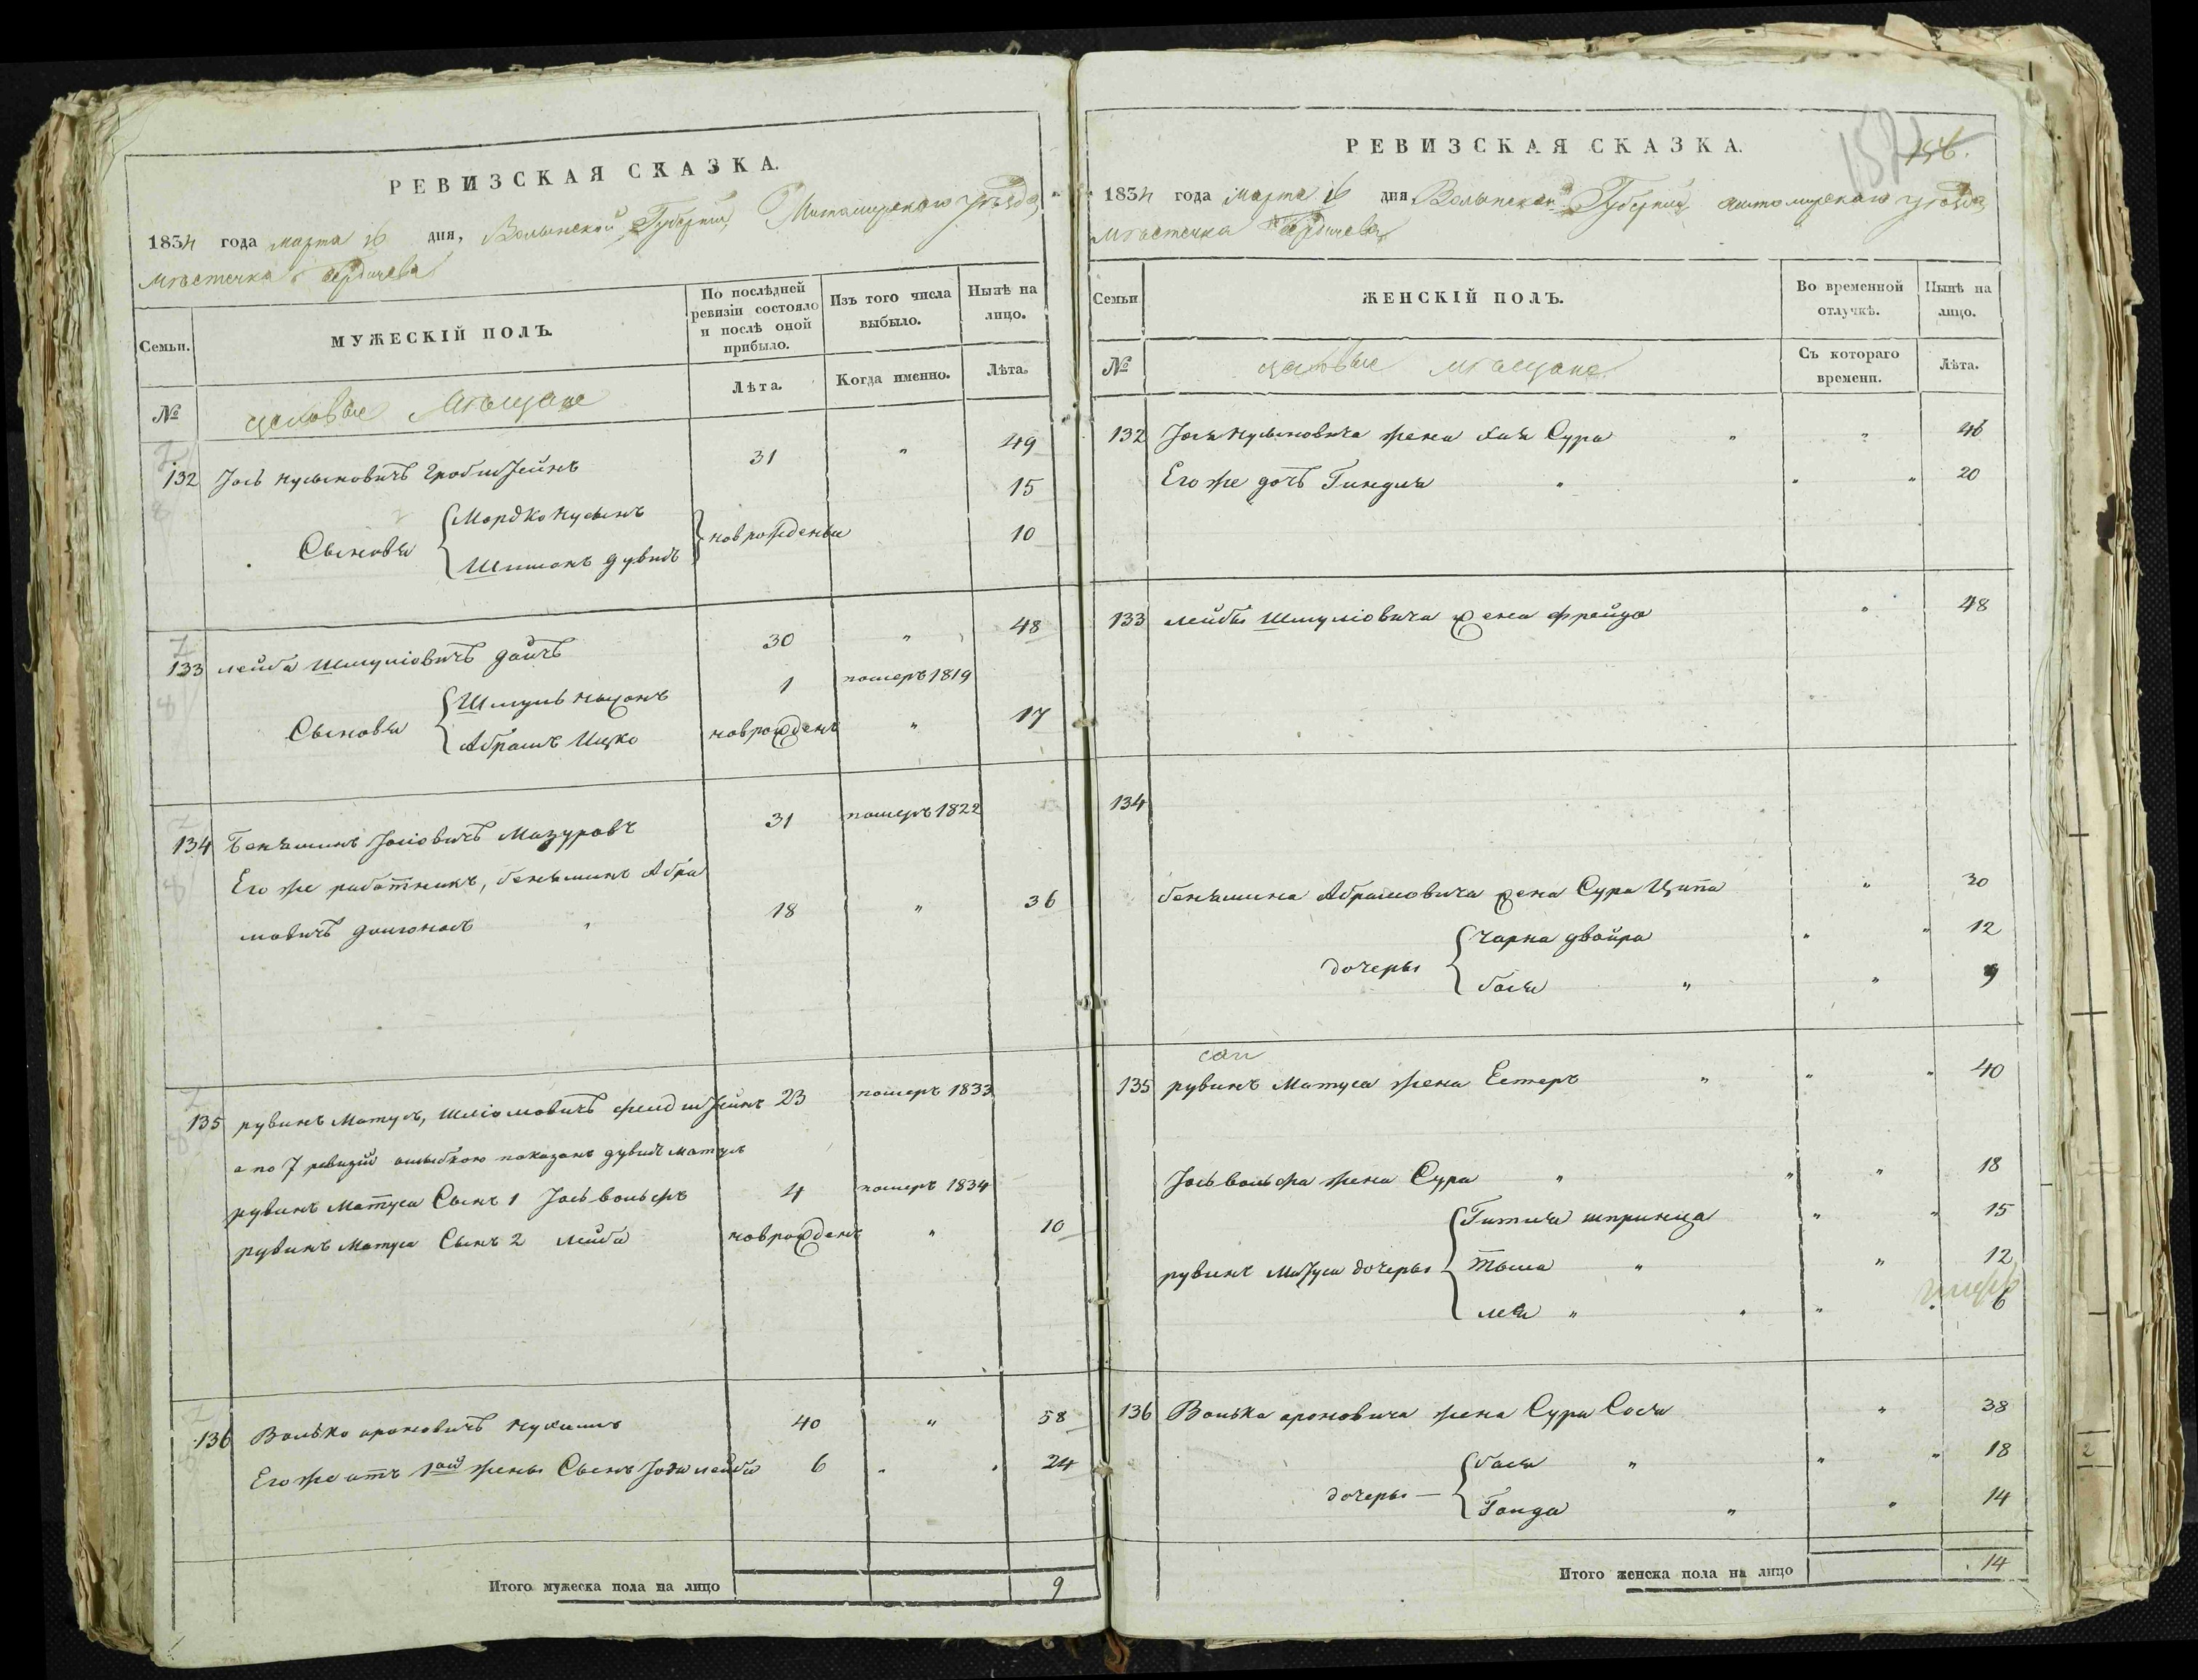 РЕВИЗСКАЯ СКАЗКА.
1834 года марта 16 дня, Волынской Губернии Житомирского уѣзда
мѣстечка Бердичева
Семьи.
МУЖЕСКІЙ ПОЛЪ.
По послѣдней ревизіи состояло и послѣ оной прибыло.
Изъ того числа выбыло.
Нынѣ на лицо.
№
мѣщане
Лѣта.
Когда именно.
Лѣта.
132 Іось Нусыновичъ Гробштейнъ 31 " 49
Сыновья Мордко Нусынъ новрожденны 15
Шимонъ Дувидъ 10
133 Лейба Шмуліовичъ Дайчъ 30 " 48
Сыновья Шмуль 1 померъ 1819
Абрамъ Ицко новрожденъ " 17
134 Беньяминъ Іосіовичъ Мазуровъ 31 померъ 1822
Его же работникъ, беньяминъ Абра
мовичъ 18 " 36
135 рувинъ Матусъ, Шліомовичъ 23 померъ 1833
а по 7 ревизіи ошибкою показанъ дувидъ матусъ
рувинъ Матуса Сынъ 1 Іось вольфъ 4 померъ 1834
рувинъ Матуса Сынъ 2 лейба новрожденъ " 10
136 Волько ароновичъ 40 " 58
Его же отъ 1ой жены Сынъ лейба 6 " 24
Итого мужеска пола на лицо 9
РЕВИЗСКАЯ СКАЗКА.
156.
1834 года марта 16 дня Волынской Губернии Житомирского уѣзда
мѣстечка Бердичева
Семьи
ЖЕНСКІЙ ПОЛЪ.
Во временной отлучкѣ.
Нынѣ на лицо.
№
мѣщане
Съ котораго времени.
Лѣта.
132 Іося Нусыновича жена Хая Сура " " 46
Его же дочь Гиндля " " " 20
133 лейбы Шмуліовича жена фрейда " 48
134
беньямина Абрамовича жена Сура Ципа " 30
дочеры чарна двойра " " 12
бася " " 9
135 рувинъ Матуса жена Естеръ " " " 40
Іось вольфа жена Сура " " " 18
рувинъ Матуса дочеры Гитля шпринца " " 15
тыла " " 12
лея " " " " 6
136 Волька ароновича жена Сура Сося " 38
дочеры — бася " " " 18
Голда " " 14
Итого женска пола на лицо 14